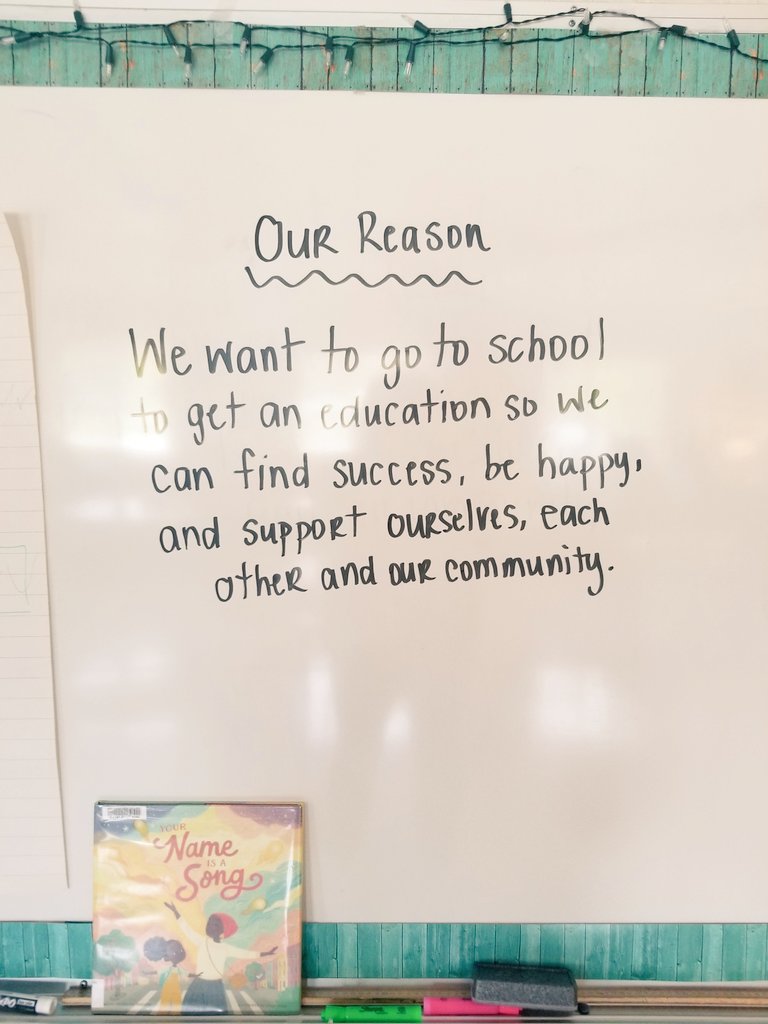 Our Reason
We want to go to school
to get an education so we
can find success, be happy,
and support ourselves, each
other and our community.
YOUR
Name
IS A
Song
Sharpie